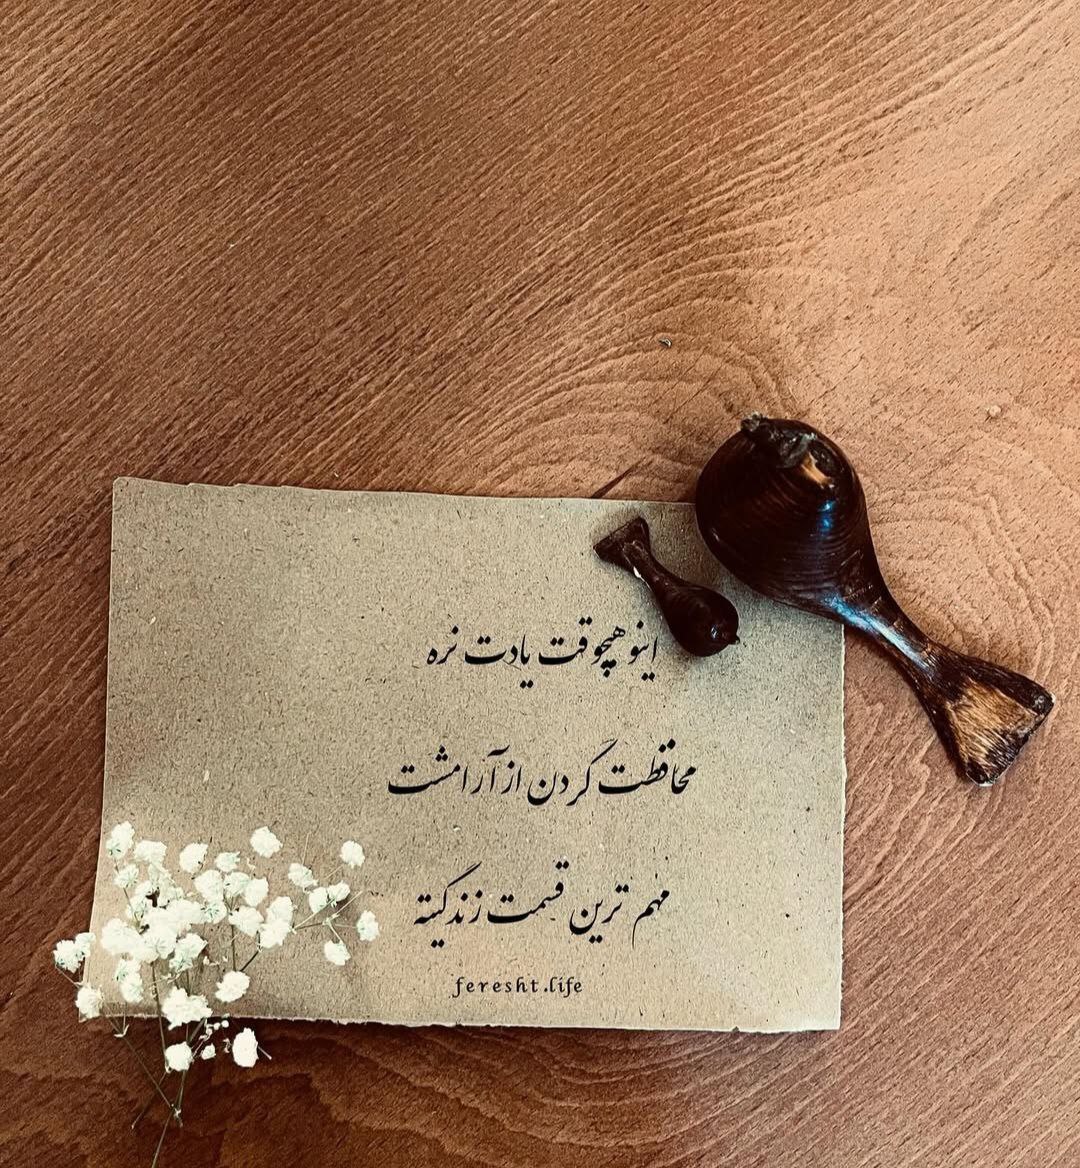 اینو هیچوقت یادت نره
محافظت کردن از آرامشت
مهم ترین قسمت زندگیته
feresht.life